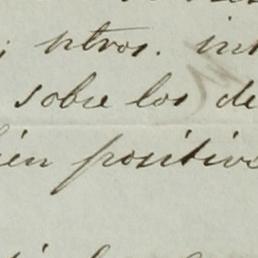 otros. int
sobre los de
ien positivo